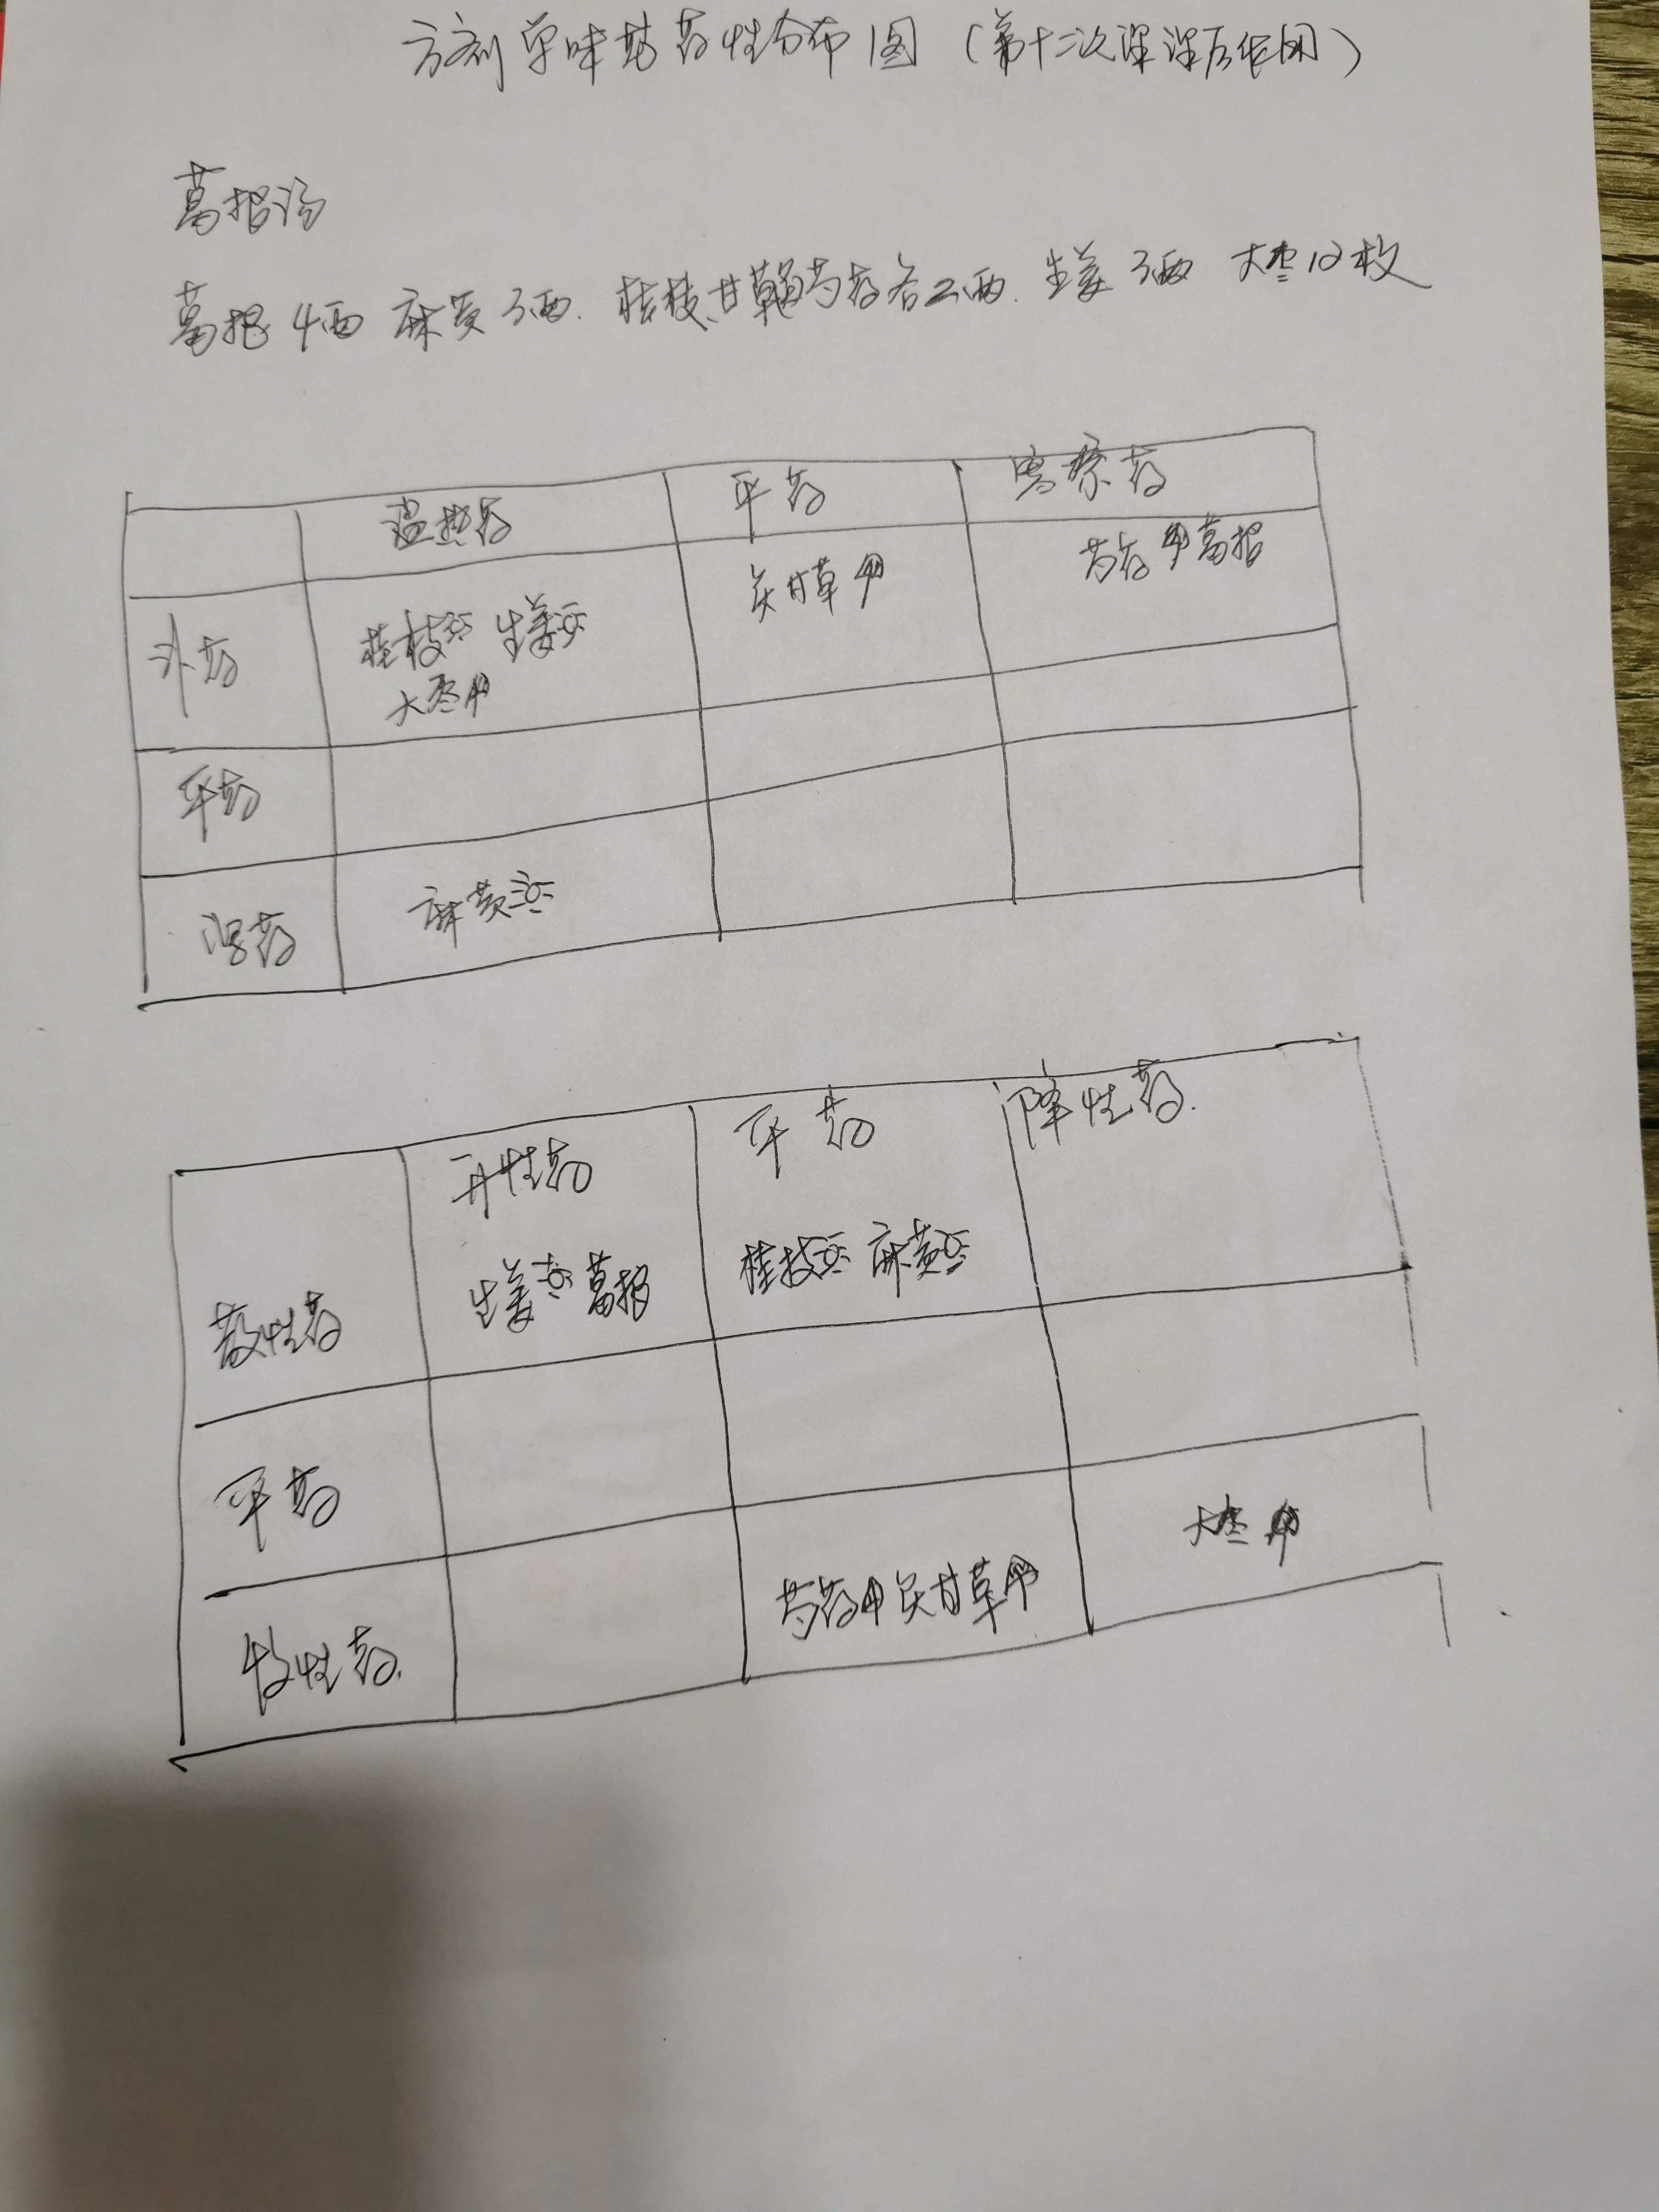 方剂单味药药性分布图（第十二次课课后作图）
葛根汤
葛根4两 麻黄3两. 桂枝、甘草、芍药各2两. 生姜3两 大枣12枚
温热药 平药 寒凉药
补药 桂枝 生姜 炙甘草 芍药 葛根
大枣
平药
泻药 麻黄
升性药 平药 降性药.
散性药 生姜 葛根 桂枝 麻黄
平药
收性药. 芍药 炙甘草 大枣